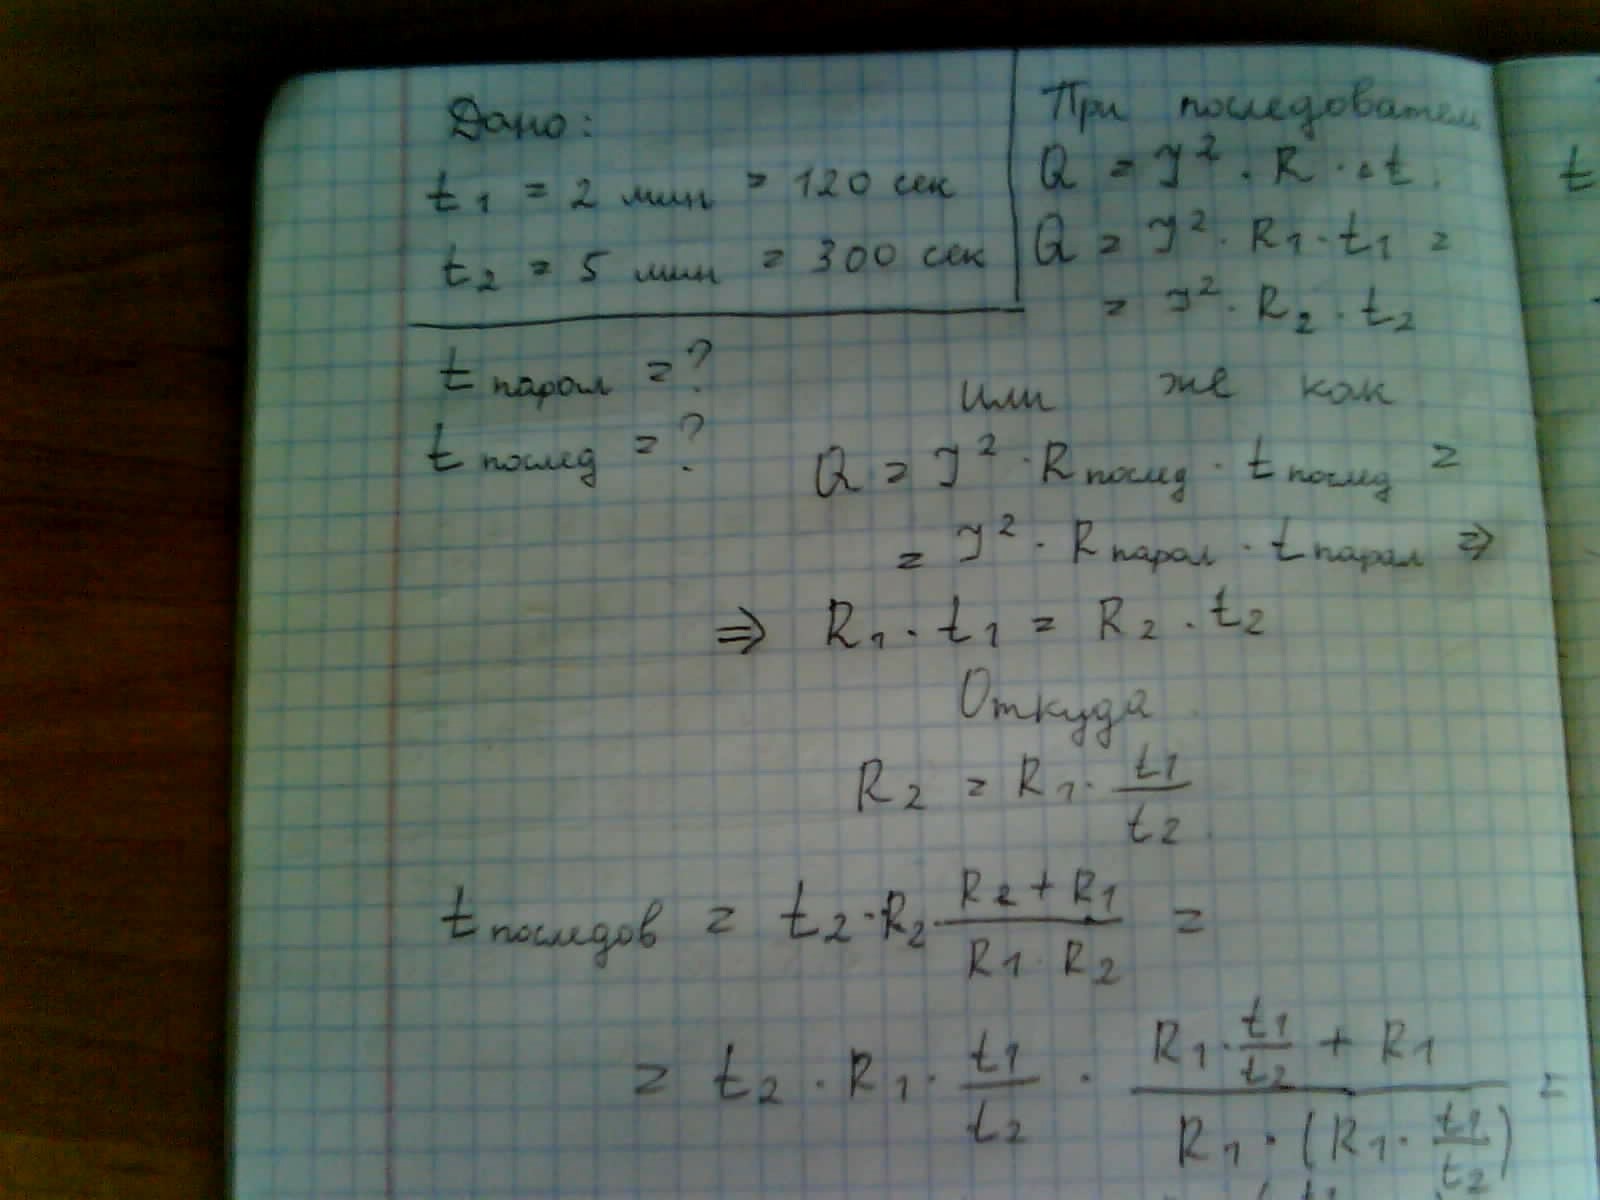 Дано:
t1 = 2 мин = 120 сек
t2 = 5 мин = 300 сек
t парал = ?
t послед = ?
При
Q = I² · R · Δt
Q = I² · R1 · t1 =
= I² · R2 · t2
или же как
Q = I² · R послед · t послед =
= I² · R парал · t парал ⇒
⇒ R1 · t1 = R2 · t2
Откуда
R2 = R1 · t1/t2
t последов = t2 · R2 · (R2 + R1)/(R1 · R2) =
= t2 · R1 · t1/t2 · (R1 · t1/t2 + R1)/(R1 · (R1 · t1/t2)) =
t